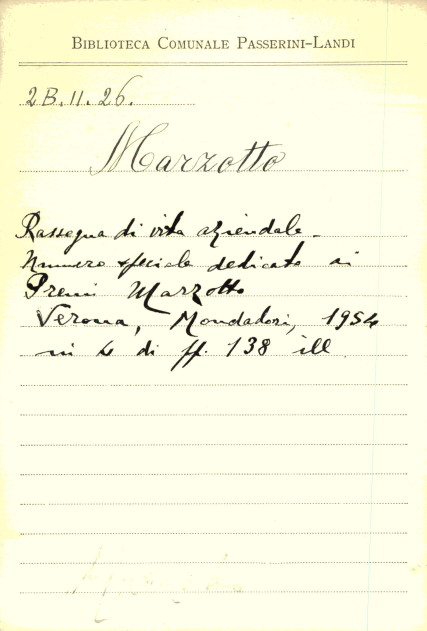 BIBLIOTECA COMUNALE PASSERINI-LANDI
2B.II.26.
Marzotto
Rassegna di vita aziendale.
Numero speciale dedicato ai
Premi Marzotto
Verona, Mondadori, 1954
in 4 di ff. 138 ill